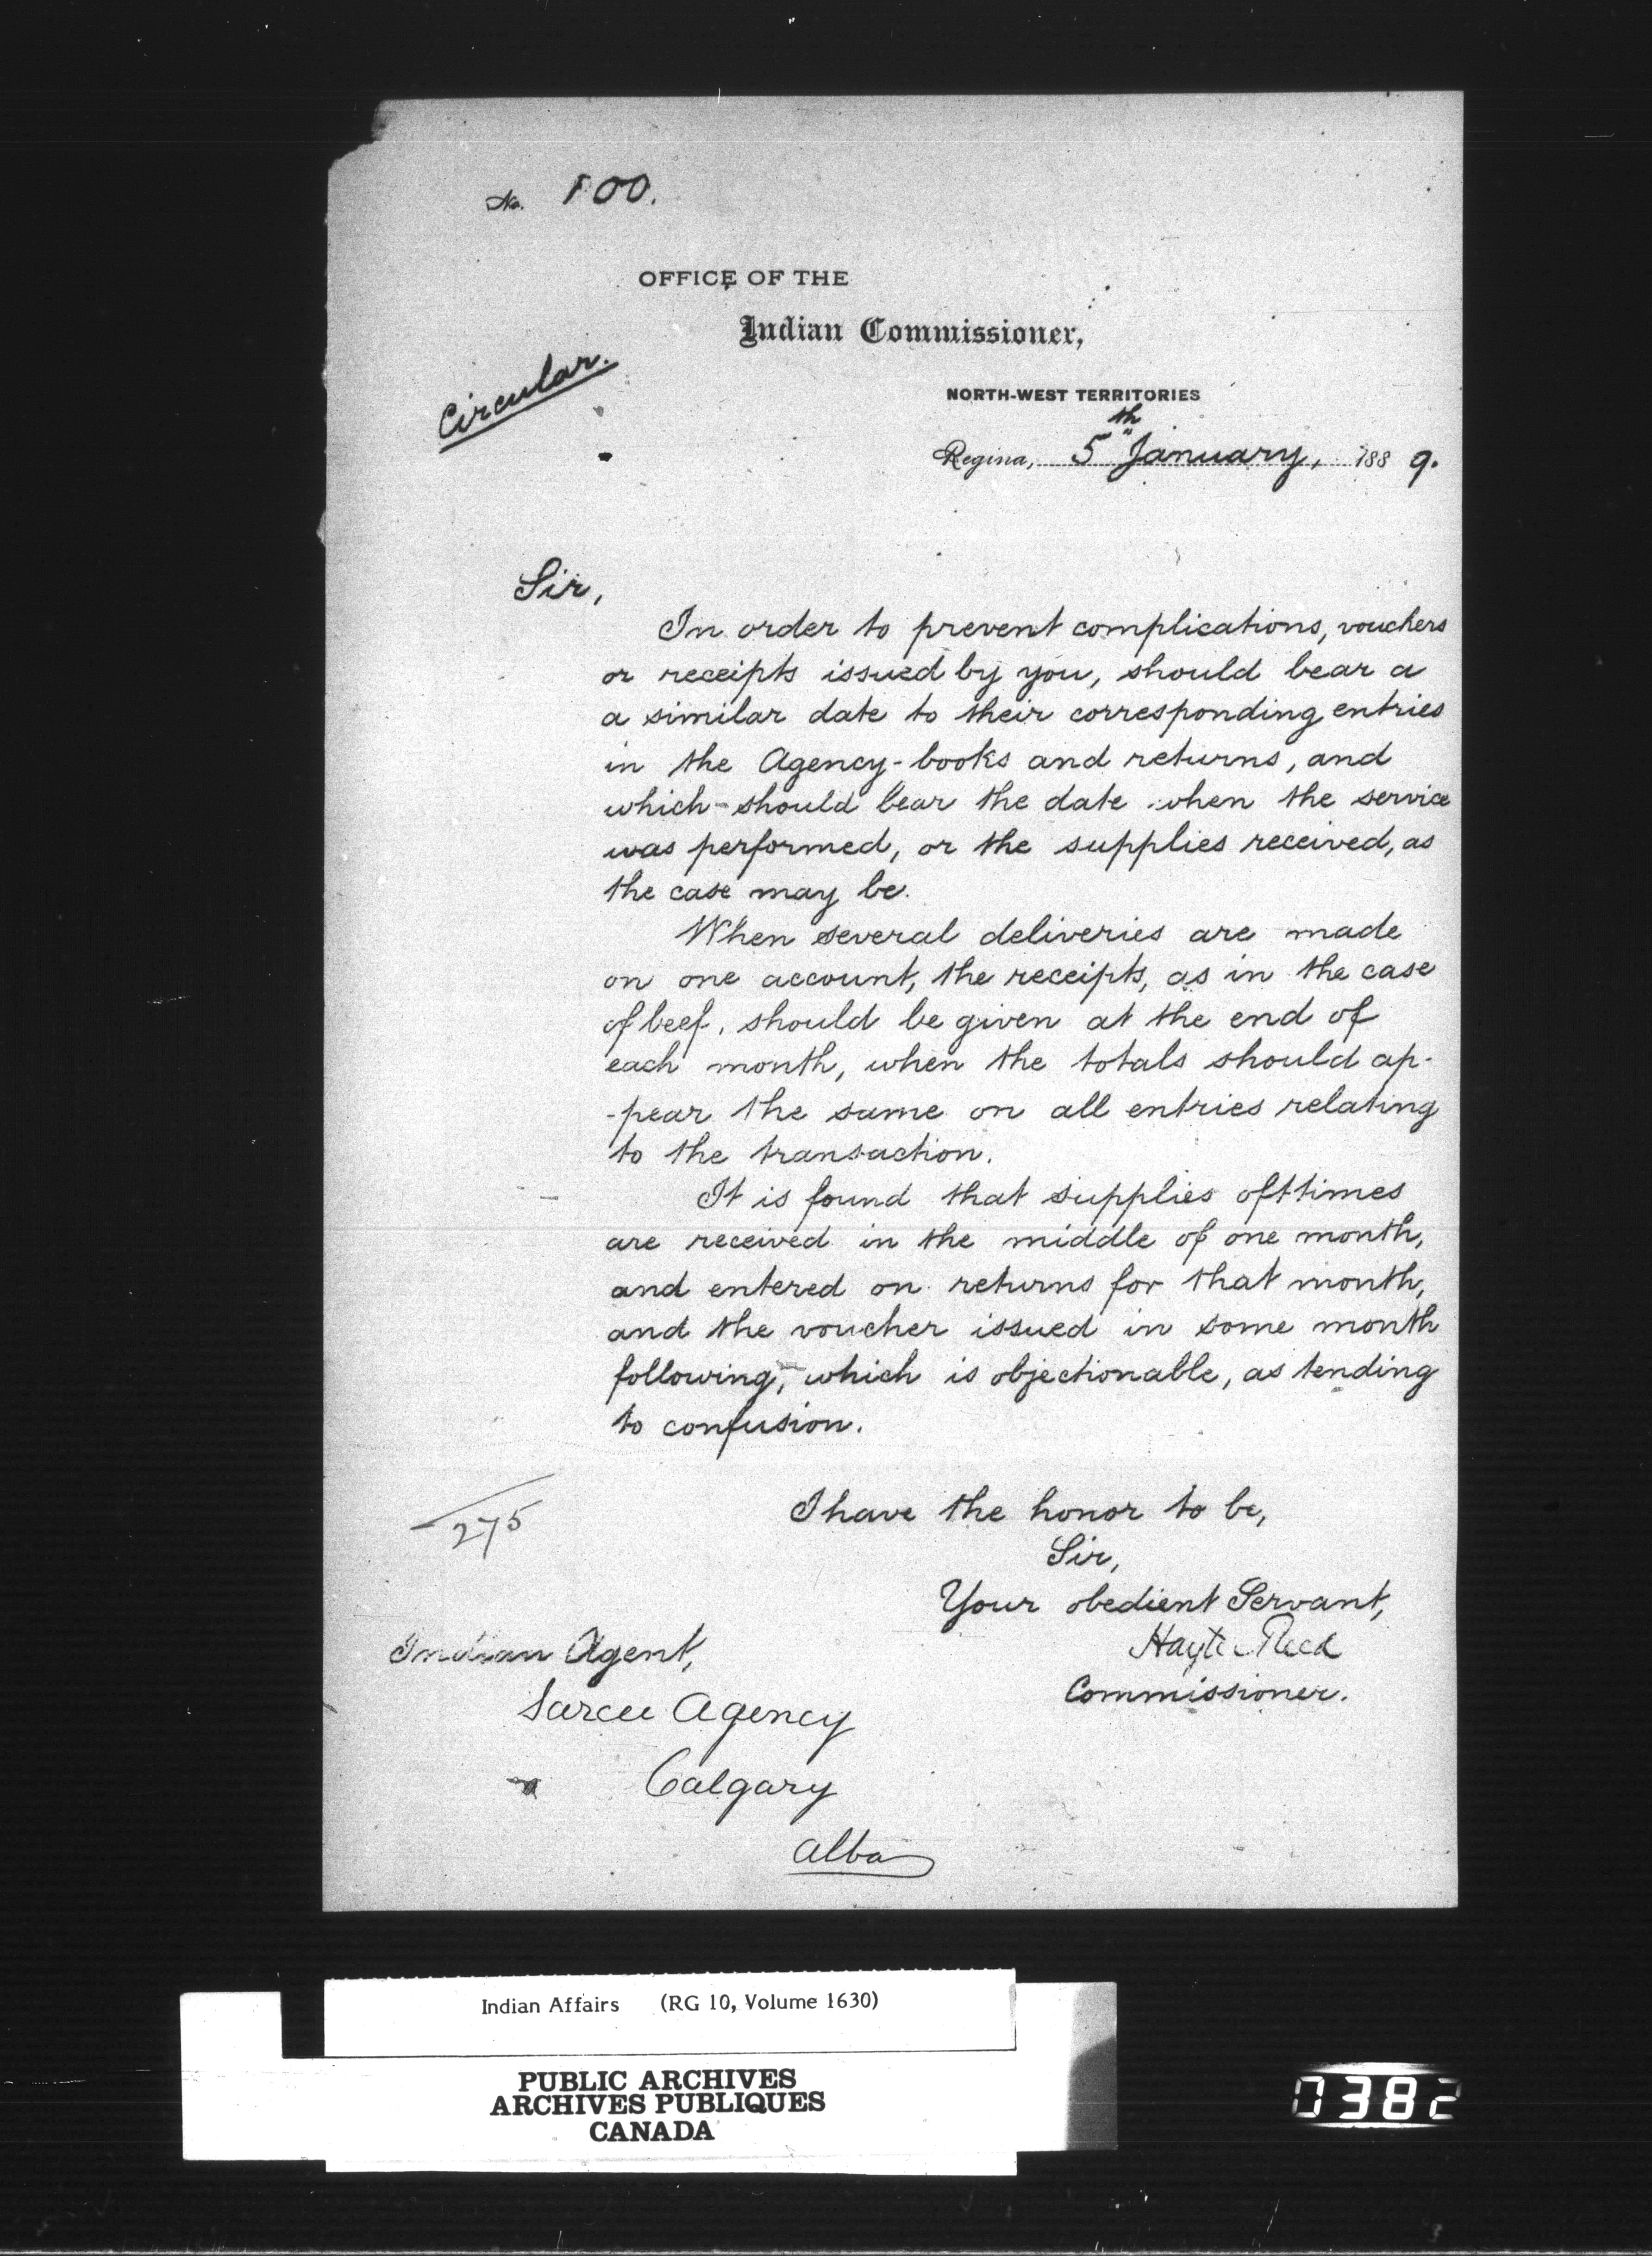 No. 100.
OFFICE OF THE
Indian Commissioner,
Circular.
NORTH-WEST TERRITORIES
Regina, 5th January, 1889.
Sir,
In order to prevent complications, vouchers
or receipts issued by you, should bear a
a similar date to their corresponding entries
in the Agency-books and returns, and
which should bear the date when the service
was performed, or the supplies received, as
the case may be.
When several deliveries are made
on one account, the receipts, as in the case
of beef, should be given at the end of
each month, when the totals should ap-
-pear the same on all entries relating
to the transaction.
It is found that supplies ofttimes
are received in the middle of one month,
and entered on returns for that month,
and the voucher issued in some month
following, which is objectionable, as tending
to confusion.
I have the honor to be,
Sir,
Your obedient Servant,
Hayter Reed
Commissioner.
275
Indian Agent,
Sarcee Agency
Calgary
Alba
Indian Affairs (RG 10, Volume 1630)
PUBLIC ARCHIVES
ARCHIVES PUBLIQUES
CANADA
0382